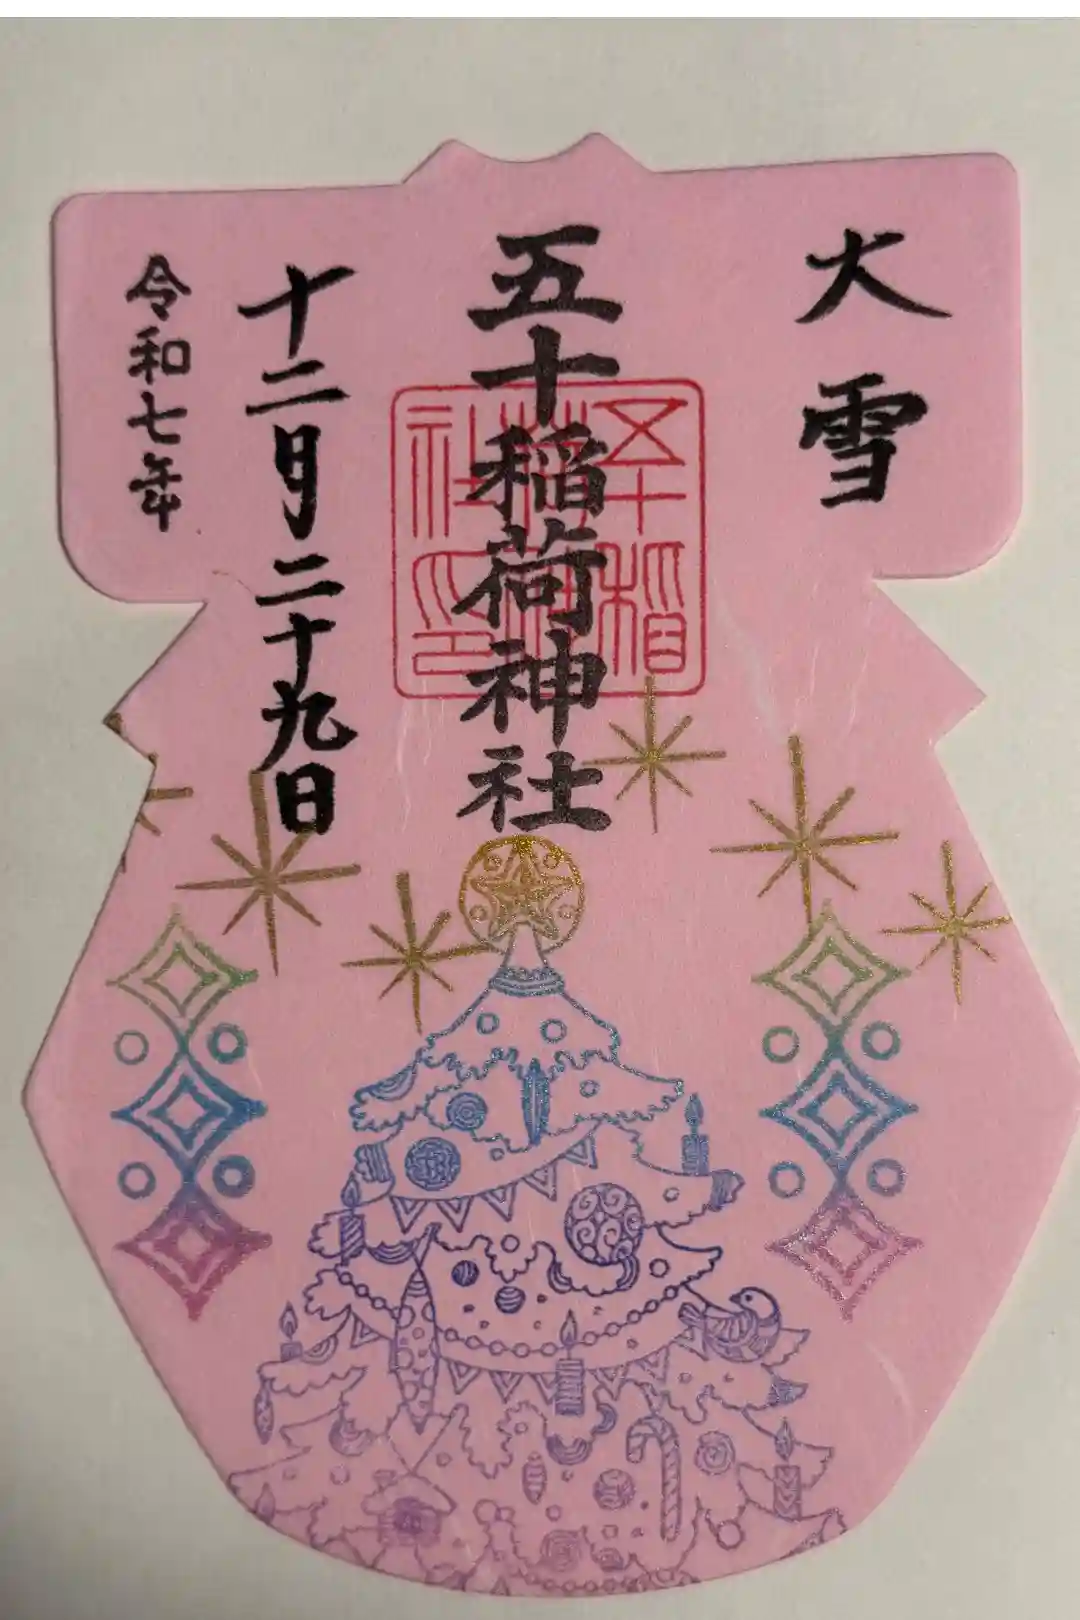 大雪
五十稲荷神社
五十稲荷神社印
十二月二十九日
令和七年